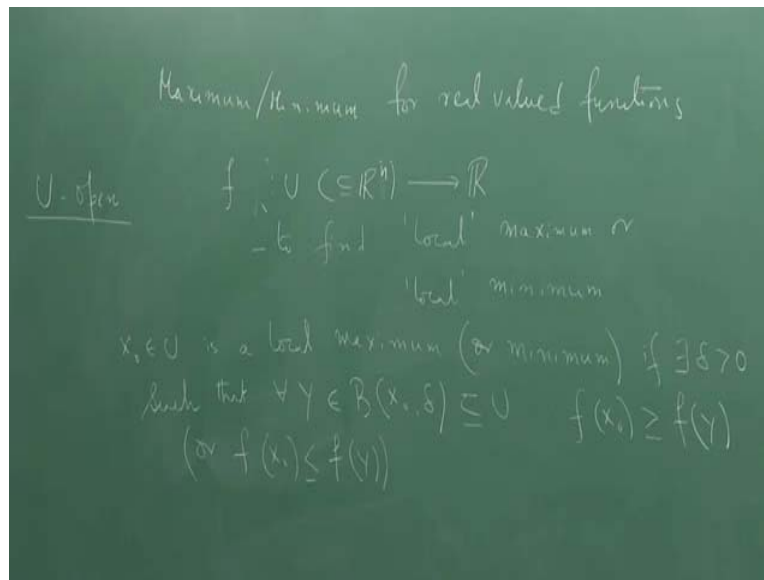 Maximum/Minimum for real valued functions
U-open f : U (⊆ ℝⁿ) ⟶ ℝ
- to find 'local' maximum or
'local' minimum
X₀ ∈ U is a local maximum (or minimum) if ∃ δ > 0
such that ∀ Y ∈ B(X₀, δ) ⊆ U f(X₀) ≥ f(Y)
(or f(X₀) ≤ f(Y))